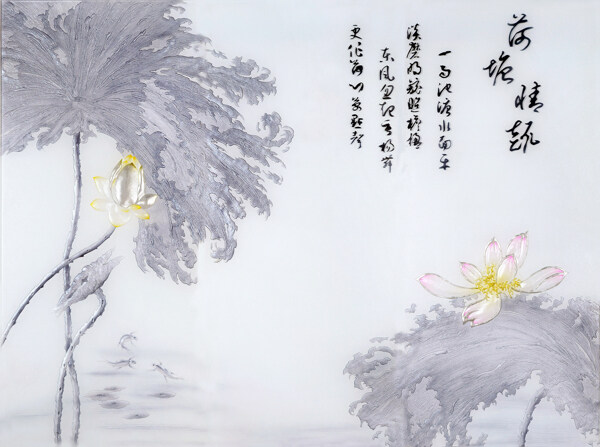 荷塘情趣
一雨池塘水面平
淡磨明镜照檐楹
东风忽起垂杨舞
更作荷心万点声